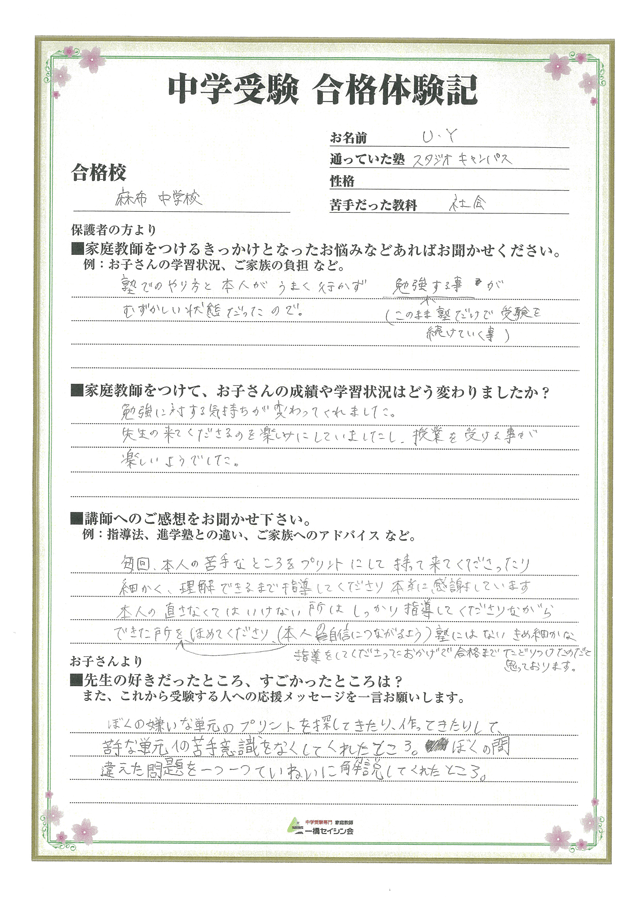 中学受験 合格体験記
お名前 U・Y
通っていた塾 スタジオキャンパス
性格
合格校
麻布 中学校
苦手だった教科 社会
保護者の方より
■家庭教師をつけるきっかけとなったお悩みなどあればお聞かせください。
例：お子さんの学習状況、ご家族の負担 など。
塾でのやり方と本人がうまく行かず 勉強する事が
むずかしい状態だったので。 (このまま塾だけで受験を
続けていく事)
■家庭教師をつけて、お子さんの成績や学習状況はどう変わりましたか？
勉強に対する気持ちが変わってくれました。
先生の来てくださるのを楽しみにしていましたし、授業を受ける事が
楽しいようでした。
■講師へのご感想をお聞かせ下さい。
例：指導法、進学塾との違い、ご家族へのアドバイス など。
毎回、本人の苦手なところをプリントにして持って来てくださったり
細かく、理解できるまで指導してくださり本当に感謝しています
本人の直さなくてはいけない所はしっかり指導してくださりながら
できた所を ほめてくださり、(本人の自信につながるよう) 塾にはない きめ細かな
指導をしてくださったおかげで合格までたどりつけたのだと
思っております。
お子さんより
■先生の好きだったところ、すごかったところは？
また、これから受験する人への応援メッセージを一言お願いします。
ぼくの嫌いな単元のプリントを探してきたり、作ってきたりして、
苦手な単元への苦手意識をなくしてくれたところ。ぼくの間
違えた問題を一つ一つていねいに解説してくれたところ。
中学受験専門 家庭教師
一橋セイシン会